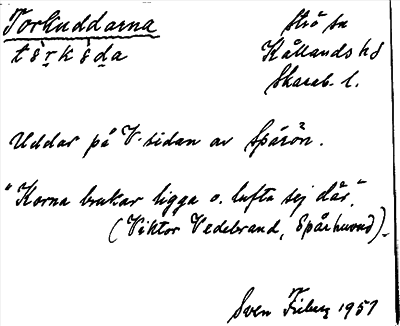 Torkuddarna
Kållands hd
Skarab. l.
Uddar på V. sidan av Spårön.
"Korna brukar ligga o. lufta sej där."
(Viktor Vedebrand, Spårhuvud).
Sven Friberg 1957